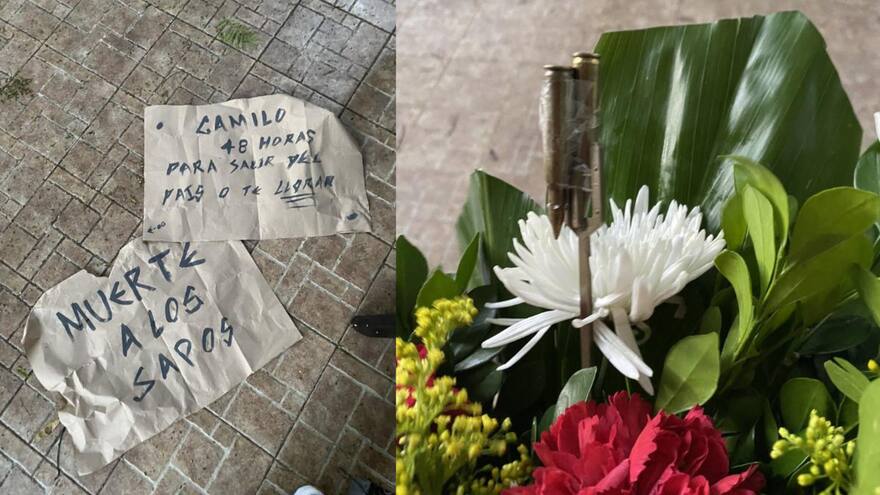 CAMILO
48 HORAS
PARA SALIR DEL
PAIS O TE LLORAN
MUERTE
A LOS
SAPOS